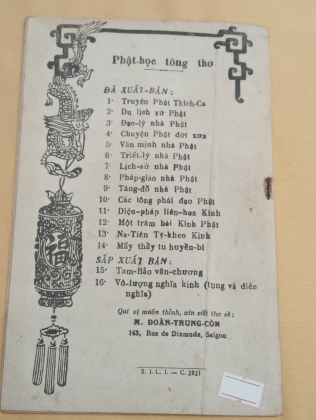 Phật-học tòng thơ
ĐÃ XUẤT-BẢN :
1· Truyện Phật Thích-Ca
2· Du lịch xứ Phật
3· Đạo-lý nhà Phật
4· Chuyện Phật đời xưa
5· Văn minh nhà Phật
6· Triết-lý nhà Phật
7· Lịch-sử nhà Phật
8· Pháp-giáo nhà Phật
9· Tăng-đồ nhà Phật
10· Các tông phái đạo Phật
11· Diệu-pháp liên-hoa Kinh
12· Một trăm bài Kinh Phật
13· Na-Tiên Tỳ-kheo Kinh
14· Mấy thầy tu huyền-bí
SẮP XUẤT BẢN :
15· Tam-Bảo văn-chương
16· Vô-lượng nghĩa kinh (tụng và diễn
nghĩa)
Quí vị muốn thỉnh, xin viết thơ về :
M. ĐOÀN-TRUNG-CÒN
143, Rue de Dixmude, Saigon
S. I. L. I. — C. 2821
福